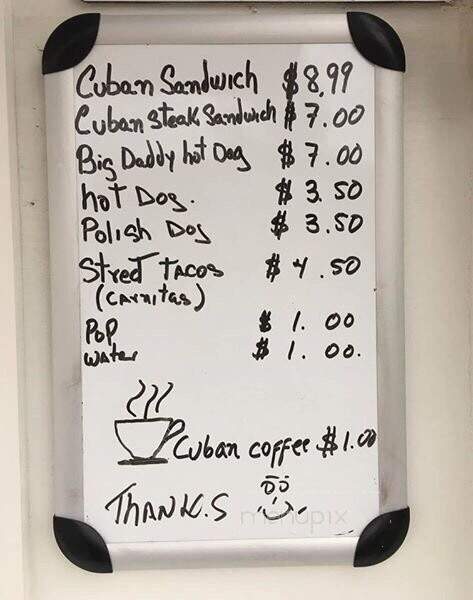 Cuban Sandwich $8,99
Cuban Steak Sandwich $7.00
Big Daddy hot Dog $7.00
hot Dog. $3.50
Polish Dog $3.50
Stret TACOS $4.50
(CARNITAS)
PoP $1.00
WAter $1.00.
Cuban coffee $1.00
THANK.S
menupix